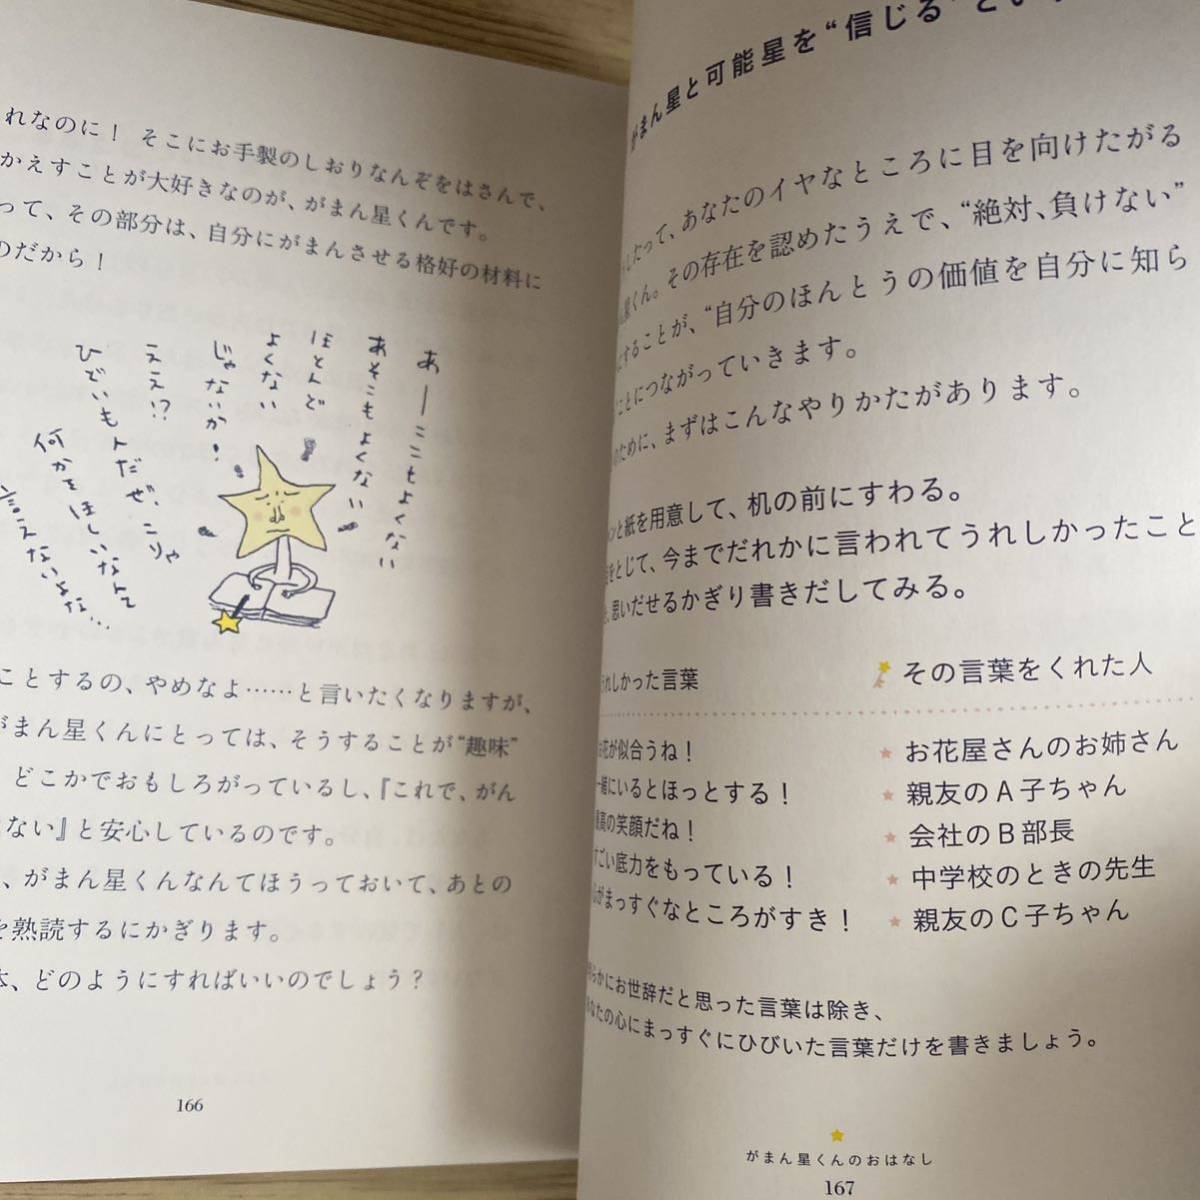 れなのに！ そこにお手製のしおりなんぞをはさんで、
かえすことが大好きなのが、がまん星くんです。
って、その部分は、自分にがまんさせる格好の材料に
のだから！
あーここもよくない
あそこもよくない
ほとんど
よくない
じゃないか！
ええ!?
ひどいもんだぜ、こりゃ
何かをほしいなんて
言えないよな…
ことするの、やめなよ……と言いたくなりますが、
がまん星くんにとっては、そうすることが“趣味”
どこかでおもしろがっているし、『これで、がん
ない』と安心しているのです。
、がまん星くんなんてほうっておいて、あとの
を熟読するにかぎります。
、どのようにすればいいのでしょう？
166
がまん星と可能星を“信じる”とい
だって、あなたのイヤなところに目を向けたがる
星くん。その存在を認めたうえで、“絶対、負けない”
することが、“自分のほんとうの価値を自分に知ら
ことにつながっていきます。
のために、まずはこんなやりかたがあります。
ンと紙を用意して、机の前にすわる。
をとじて、今までだれかに言われてうれしかったこと
、思いだせるかぎり書きだしてみる。
うれしかった言葉 その言葉をくれた人
お花が似合うね！ ★ お花屋さんのお姉さん
一緒にいるとほっとする！ ★ 親友のA子ちゃん
最高の笑顔だね！ ★ 会社のB部長
すごい底力をもっている！ ★ 中学校のときの先生
心がまっすぐなところがすき！ ★ 親友のC子ちゃん
らかにお世辞だと思った言葉は除き、
あなたの心にまっすぐにひびいた言葉だけを書きましょう。
がまん星くんのおはなし
167